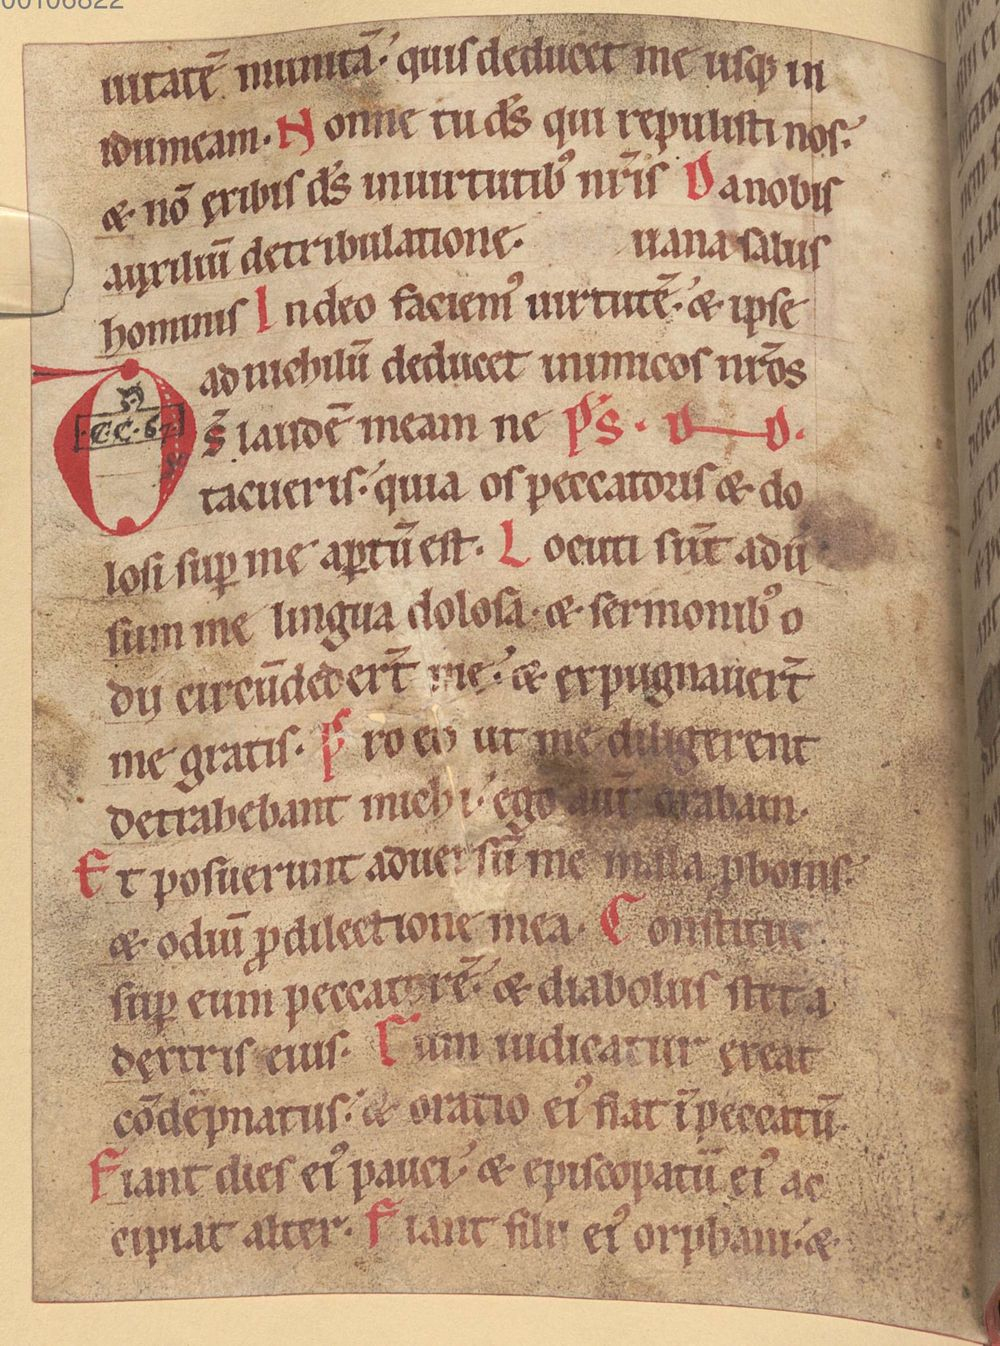 00106822
uitatē munitā· quis deducet me usq; in
idumeam· Nonne tu ds̄ qui repulisti nos·
& nō exibis ds̄ in uirtutib; nr̄is Da nobis
auxiliū de tribulatione· uana salus
hominis In deo faciem᾽ uirtutē· & ipse
ad nichilū deducet inimicos nr̄os
Ds̄ laudē meam ne ps̄· D D·
·CC·67
tacueris· quia os peccatoris & do
losi sup me aptū est· Locuti sūt adū
sum me lingua dolosa· & sermonib᾽ o
dij circūdedert̄ me· & expugnauert̄
me gratis· Pro eo ut me diligerent
detrahebant michi· ego aut̄ orabam·
Et posuerunt aduersū me mala p bonis·
& odiū p dilectione mea· Constitue
sup eum peccatorē· & diabolus stet a
dextris eius· Cum iudicatur exeat
cōdēpnatus· & oratio ei᾽ fiat ī peccatū·
Fiant dies ei᾽ pauci· & episcopatū ei᾽ ac
cipiat alter· Fiant filii ei᾽ orphani· &